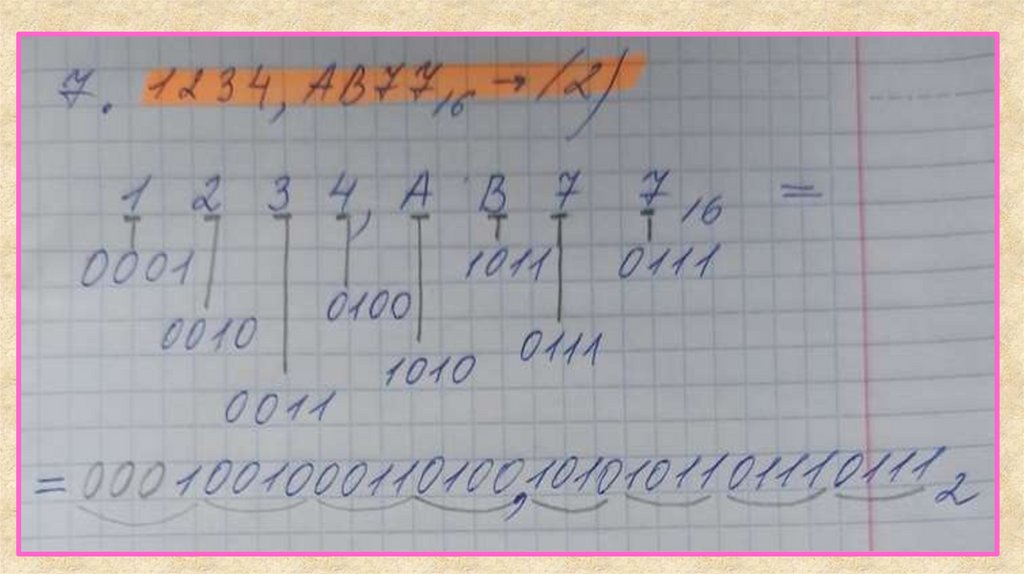 7. 1234,AB77₁₆ → (2)
1 2 3 4, A B 7 7 ₁₆ =
0001 1011 0111
0010 0100 0111
1010
0011
= 00010010001101000,1010101101110111₂